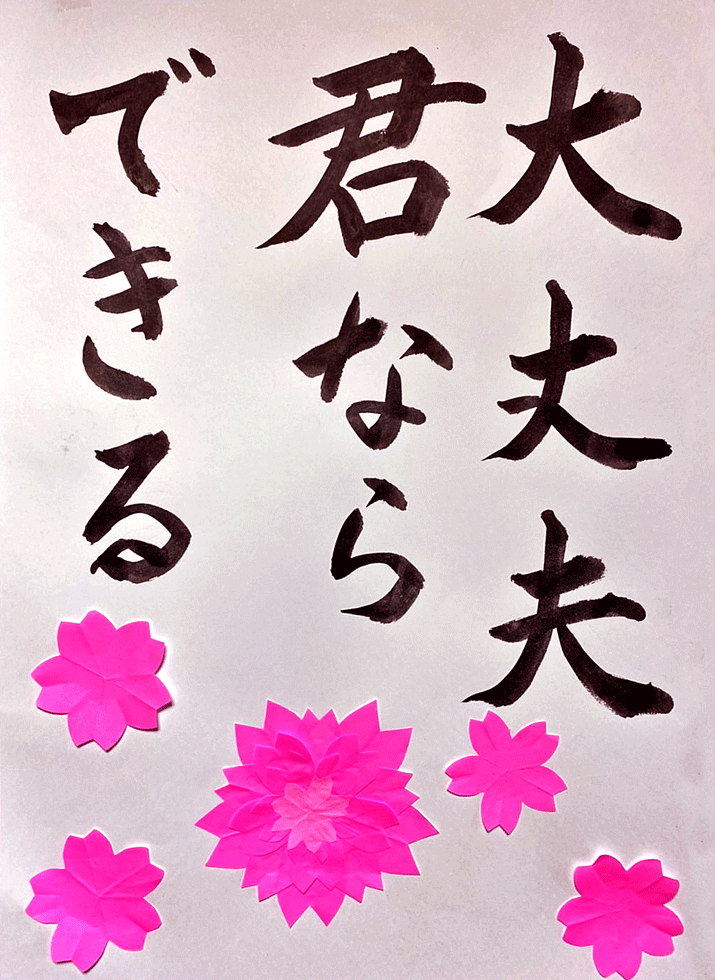 大丈夫
君なら
できる